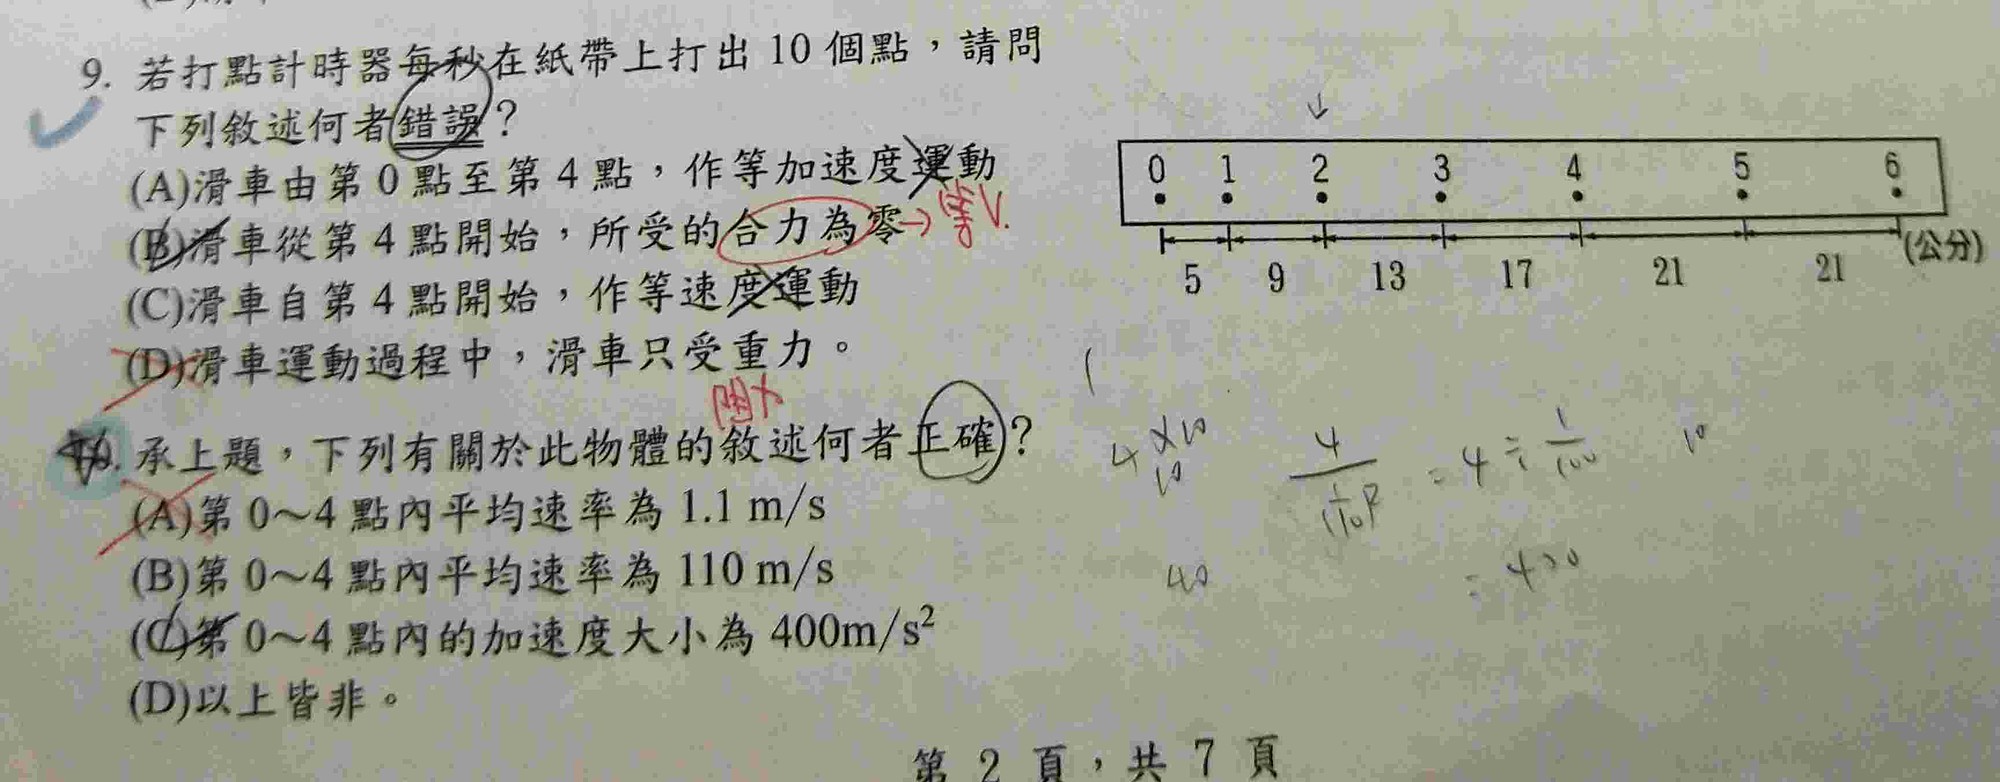 9. 若打點計時器每秒在紙帶上打出 10 個點，請問
下列敘述何者錯誤?
(A)滑車由第 0 點至第 4 點，作等加速度運動
(B)滑車從第 4 點開始，所受的合力為零→等V.
(C)滑車自第 4 點開始，作等速度運動
(D)滑車運動過程中，滑車只受重力。
0 1 2 3 4 5 6
5 9 13 17 21 21 (公分)
承上題，下列有關於此物體的敘述何者正確?
(A)第 0～4 點內平均速率為 1.1 m/s
(B)第 0～4 點內平均速率為 110 m/s
(C)第 0～4 點內的加速度大小為 400m/s²
(D)以上皆非。
4×10
10
40
4
= 4 ÷ 1/100
10
= 400
第 2 頁，共 7 頁